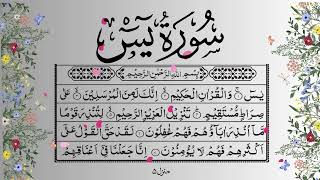 سُورَةُ يٰسٓ
بِسْمِ اللهِ الرَّحْمٰنِ الرَّحِيْمِ
يٰسٓ ۝ وَالْقُرْاٰنِ الْحَكِيْمِ ۝ اِنَّكَ لَمِنَ الْمُرْسَلِيْنَ ۝ عَلٰى
صِرَاطٍ مُّسْتَقِيْمٍ ۝ تَنْزِيْلَ الْعَزِيْزِ الرَّحِيْمِ ۝ لِتُنْذِرَ قَوْمًا
مَّاۤ اُنْذِرَ اٰبَآؤُهُمْ فَهُمْ غٰفِلُوْنَ ۝ لَقَدْ حَقَّ الْقَوْلُ عَلٰۤى
اَكْثَرِهِمْ فَهُمْ لَا يُؤْمِنُوْنَ ۝ اِنَّا جَعَلْنَا فِيْۤ اَعْنَاقِهِمْ
منزل ۵